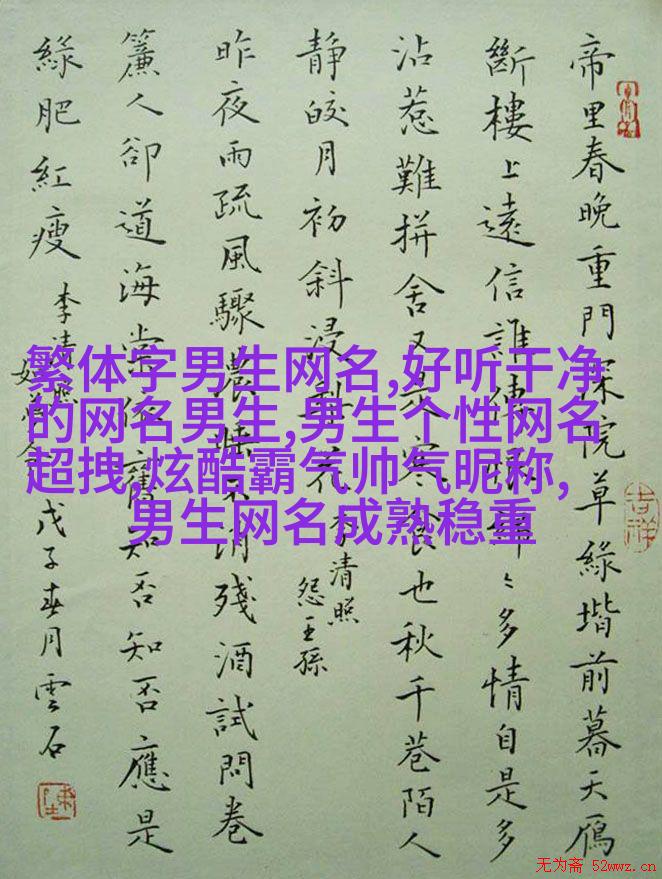 帝里春晚重門深院草綠堦前暮天鴈
斷樓上遠信誰傳恨綿〻多情自是多
沾惹難拼舍又是寒食也秋千巷陌人
靜皎月初斜浸梨花
李清照
怨王孫
昨夜雨疏風驟濃睡不消殘酒試問卷
簾人卻道海棠依舊知否知否應是
綠肥紅瘦
李清照
如夢令
戊子春月雲石
吉祥
繁体字男生网名,好听干净
的网名男生,男生个性网名
超拽,炫酷霸气帅气昵称,
男生网名成熟稳重
无为斋 52wwz.cn